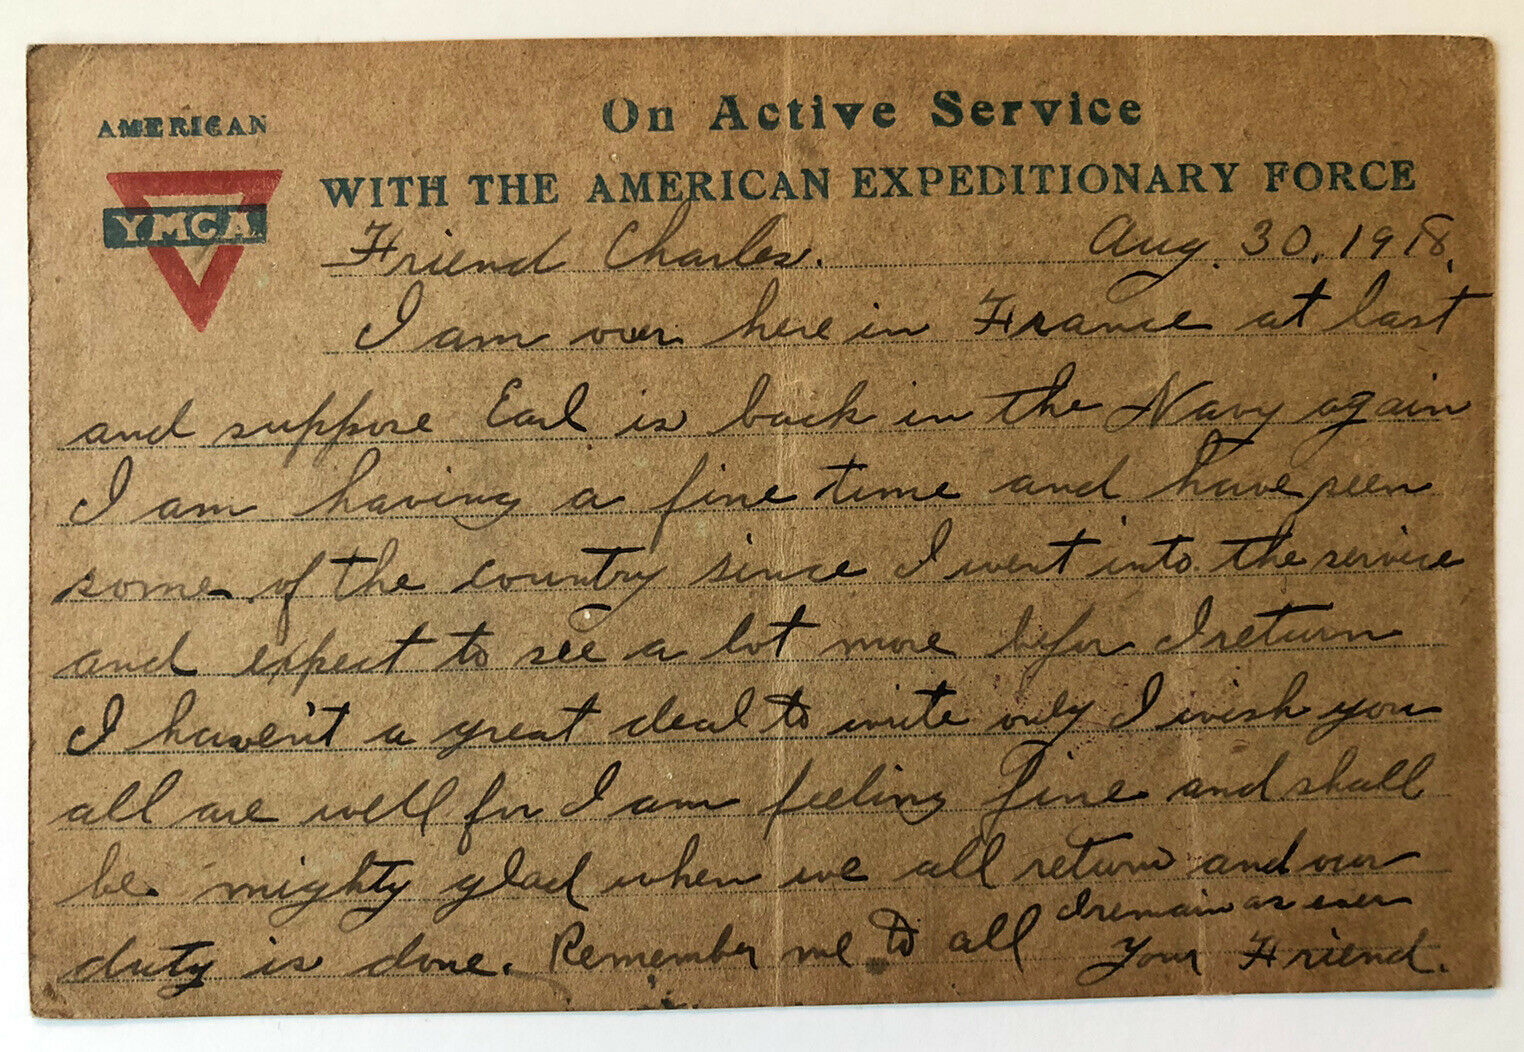 On Active Service
AMERICAN
WITH THE AMERICAN EXPEDITIONARY FORCE
YMCA
Friend Charles. Aug. 30, 1918.
I am over here in France at last
and suppose Earl is back in the Navy again
I am having a fine time and have seen
some of the country since I went into the service
and expect to see a lot more befor I return
I haven't a great deal to write only I wish you
all are well for I am feeling fine and shall
be mighty glad when we all return and our
duty is done. Remember me to all I remain as ever
Your Friend.